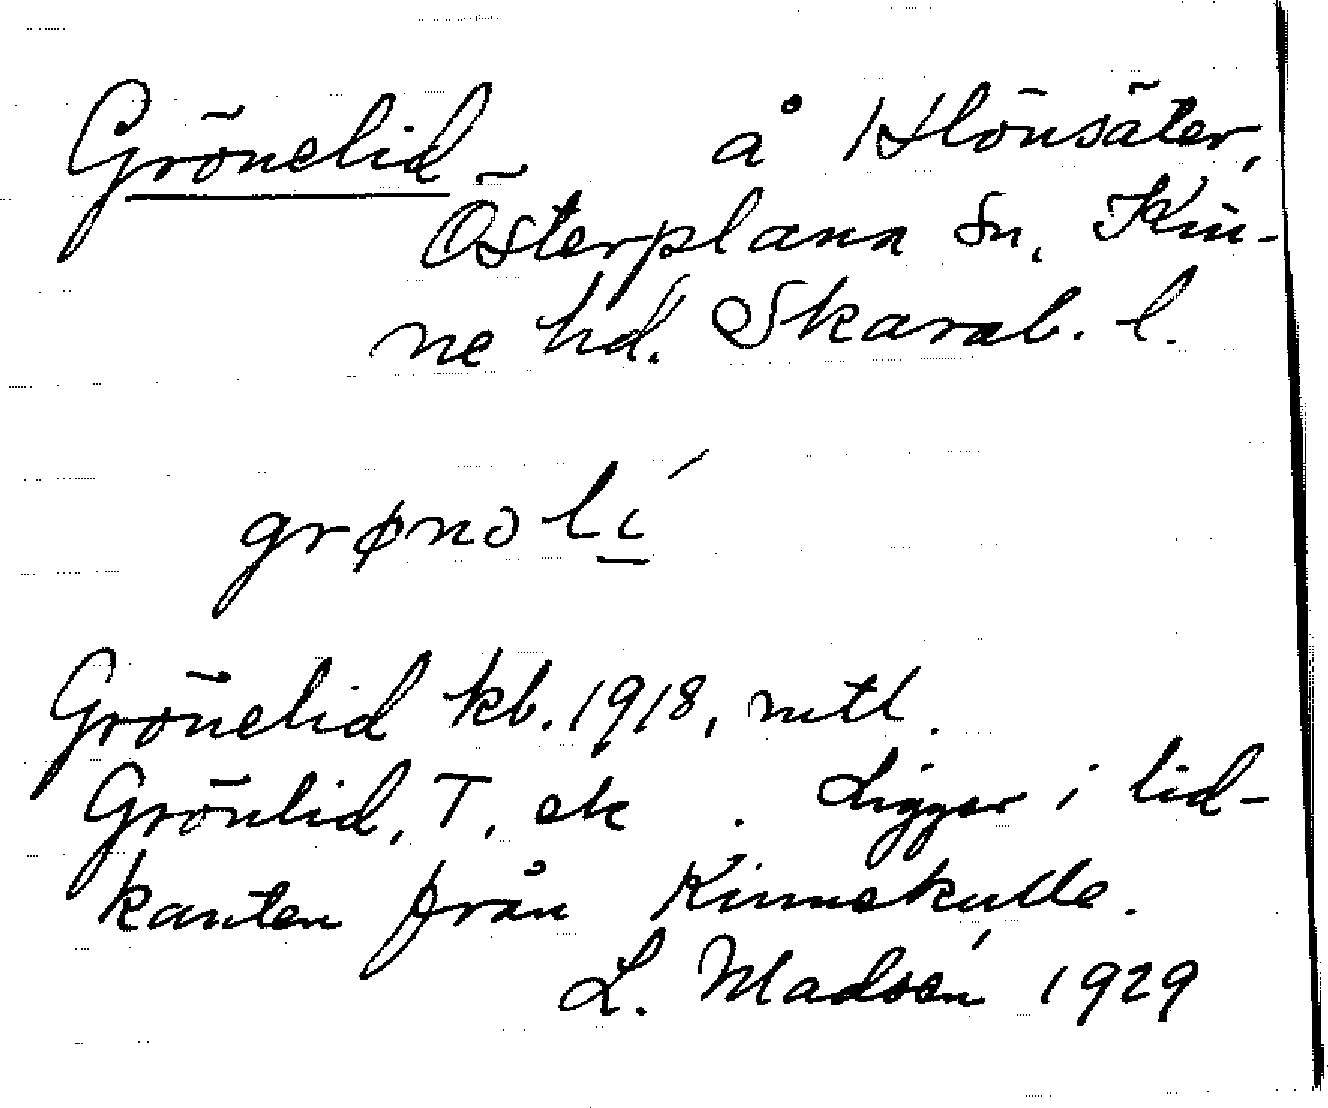 Grönelid å Hönsäter,
Österplana sn, Kin-
ne hd. Skarab. l.
grønɔ lí
Grönelid kb. 1918, mtl.
Grönlid, T. ek. Ligger i lid-
kanten från Kinnekulle.
L. Madsén 1929